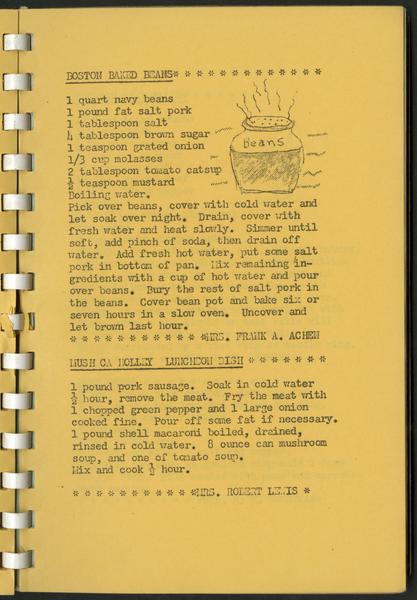 BOSTON BAKED BEANS* * * * * * * * * * * * *
1 quart navy beans
1 pound fat salt pork
1 tablespoon salt
4 tablespoon brown sugar
1 teaspoon grated onion
1/3 cup molasses
2 tablespoon tomato catsup
½ teaspoon mustard
Boiling water.
Beans
Pick over beans, cover with cold water and
let soak over night.  Drain, cover with
fresh water and heat slowly.  Simmer until
soft, add pinch of soda, then drain off
water.  Add fresh hot water, put some salt
pork in bottom of pan.  Mix remaining in-
gredients with a cup of hot water and pour
over beans.  Bury the rest of salt pork in
the beans.  Cover bean pot and bake six or
seven hours in a slow oven.  Uncover and
let brown last hour.
* * * * * * * * * * * *MRS. FRANK A. ACHEN
HUSH CA HOLLEY  LUNCHEON DISH * * * * * * *
1 pound pork sausage.  Soak in cold water
½ hour, remove the meat.  Fry the meat with
1 chopped green pepper and 1 large onion
cooked fine.  Pour off some fat if necessary.
1 pound shell macaroni boiled, drained,
rinsed in cold water.  8 ounce can mushroom
soup, and one of tomato soup.
Mix and cook ½ hour.
* * * * * * * * * * *MRS. ROBERT LEWIS *